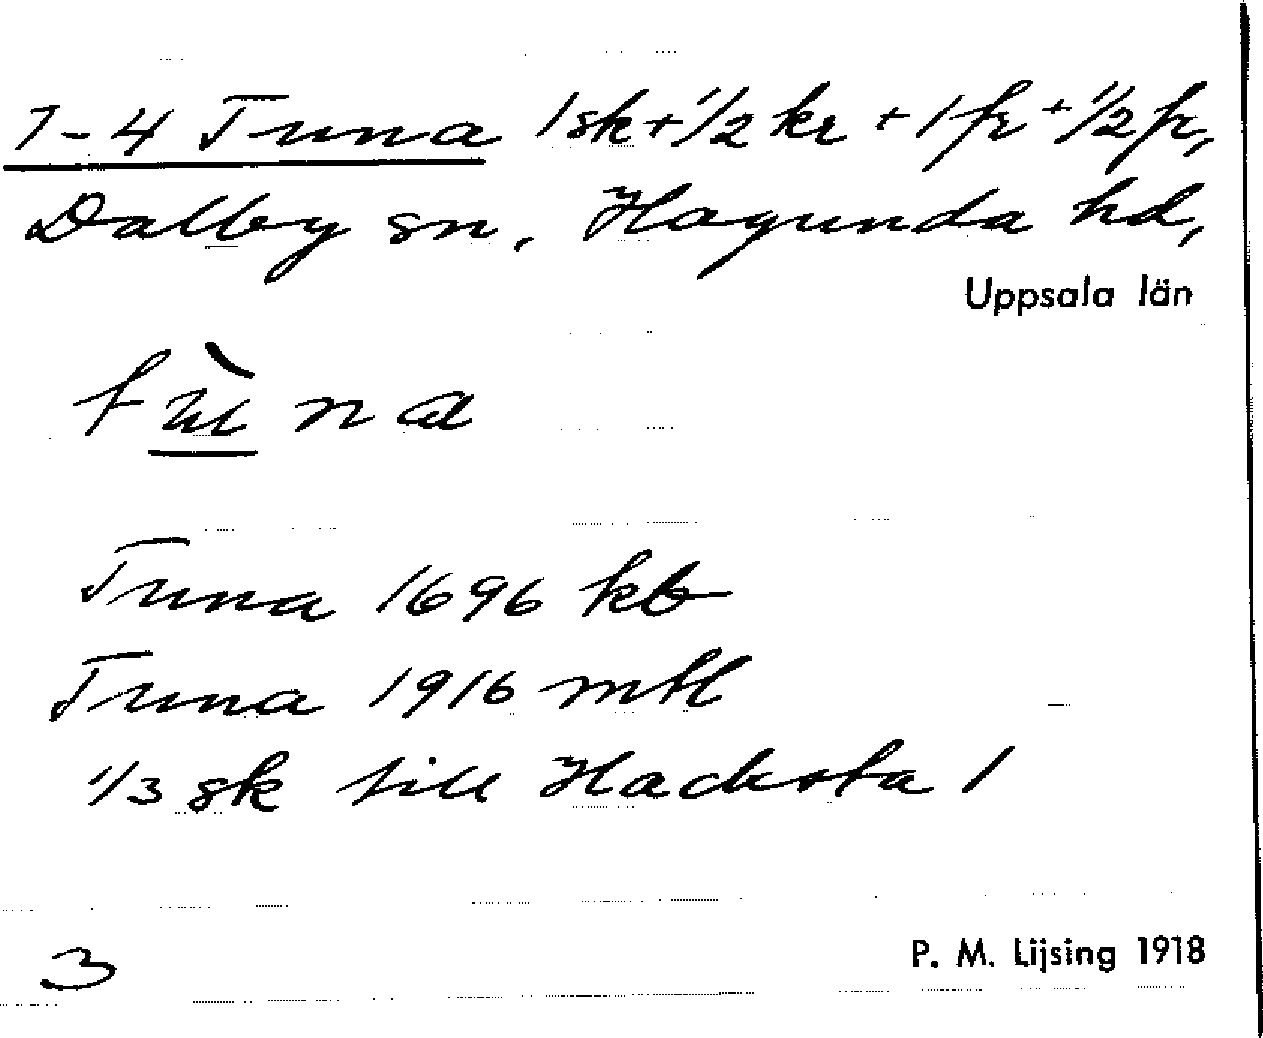 1-4 Tuna 1 sk + 1/2 kr + 1 fr + 1/2 fr,
Dalby sn, Hagunda hd,
Uppsala län
tùna
Tuna 1696 kb
Tuna 1916 mtl
1/3 sk till Hacksta 1
3
P. M. Lijsing 1918